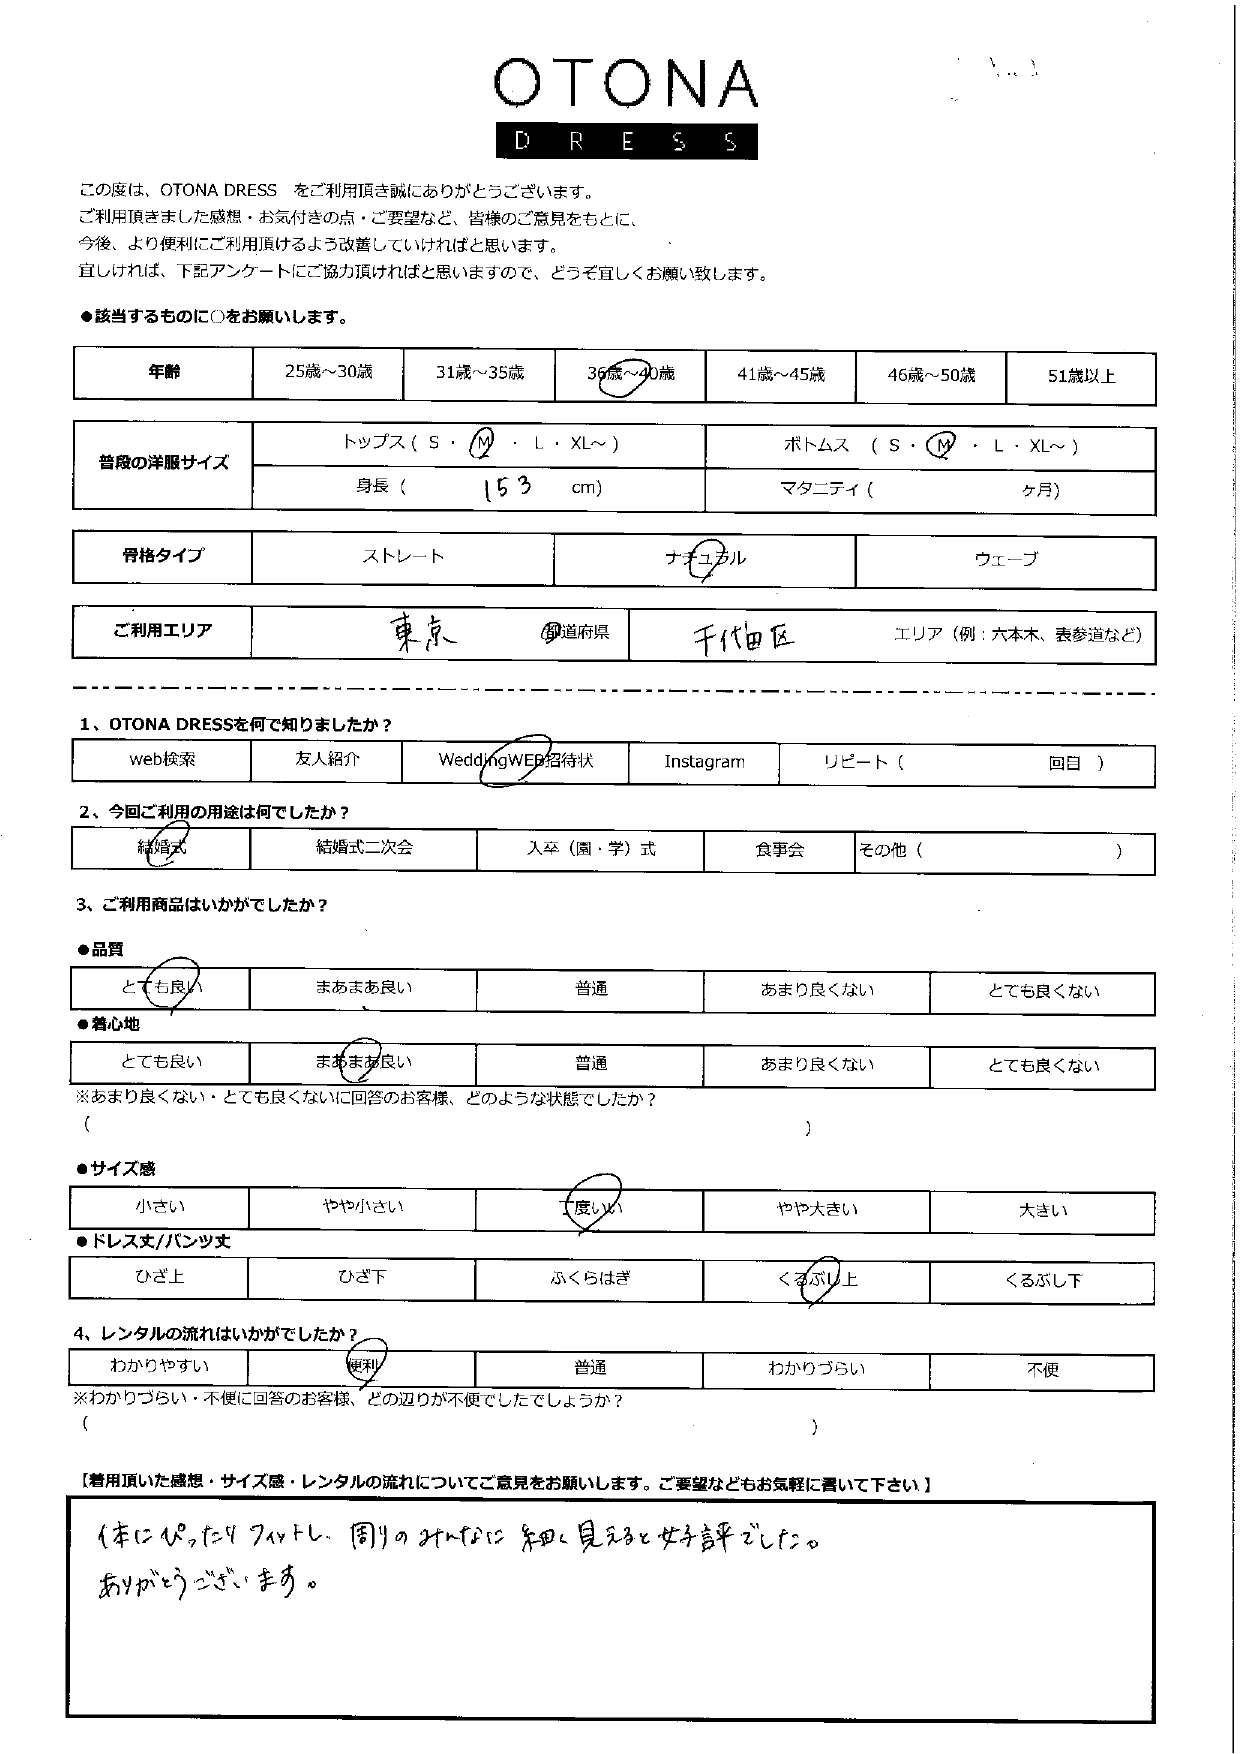 OTONA
DRESS
この度は、OTONA DRESS　をご利用頂き誠にありがとうございます。
ご利用頂きました感想・お気付きの点・ご要望など、皆様のご意見をもとに、
今後、より便利にご利用頂けるよう改善していければと思います。
宜しければ、下記アンケートにご協力頂ければと思いますので、どうぞ宜しくお願い致します。
●該当するものに○をお願いします。
年齢 25歳～30歳 31歳～35歳 36歳～40歳 41歳～45歳 46歳～50歳 51歳以上
普段の洋服サイズ トップス ( S ・ M ・ L ・ XL～ ) ボトムス ( S ・ M ・ L ・ XL～ )
身長 ( 153 cm) マタニティ ( ヶ月)
骨格タイプ ストレート ナチュラル ウェーブ
ご利用エリア 東京 都道府県 千代田区 エリア（例：六本木、表参道など）
1、OTONA DRESSを何で知りましたか？
web検索 友人紹介 WeddingWEB招待状 Instagram リピート（ 回目 ）
2、今回ご利用の用途は何でしたか？
結婚式 結婚式二次会 入卒（園・学）式 食事会 その他（ ）
3、ご利用商品はいかがでしたか？
●品質
とても良い まあまあ良い 普通 あまり良くない とても良くない
●着心地
とても良い まあまあ良い 普通 あまり良くない とても良くない
※あまり良くない・とても良くないに回答のお客様、どのような状態でしたか？
（ ）
●サイズ感
小さい やや小さい 丁度いい やや大きい 大きい
●ドレス丈/パンツ丈
ひざ上 ひざ下 ふくらはぎ くるぶし上 くるぶし下
4、レンタルの流れはいかがでしたか？
わかりやすい 便利 普通 わかりづらい 不便
※わかりづらい・不便に回答のお客様、どの辺りが不便でしたでしょうか？
（ ）
【着用頂いた感想・サイズ感・レンタルの流れについてご意見をお願いします。ご要望などもお気軽に書いて下さい】
体にぴったりフィットし、周りのみんなに細く見えると好評でした。
ありがとうございます。